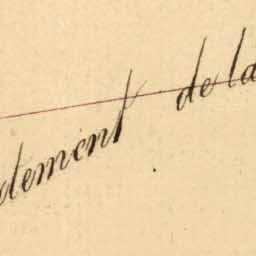 dement de la